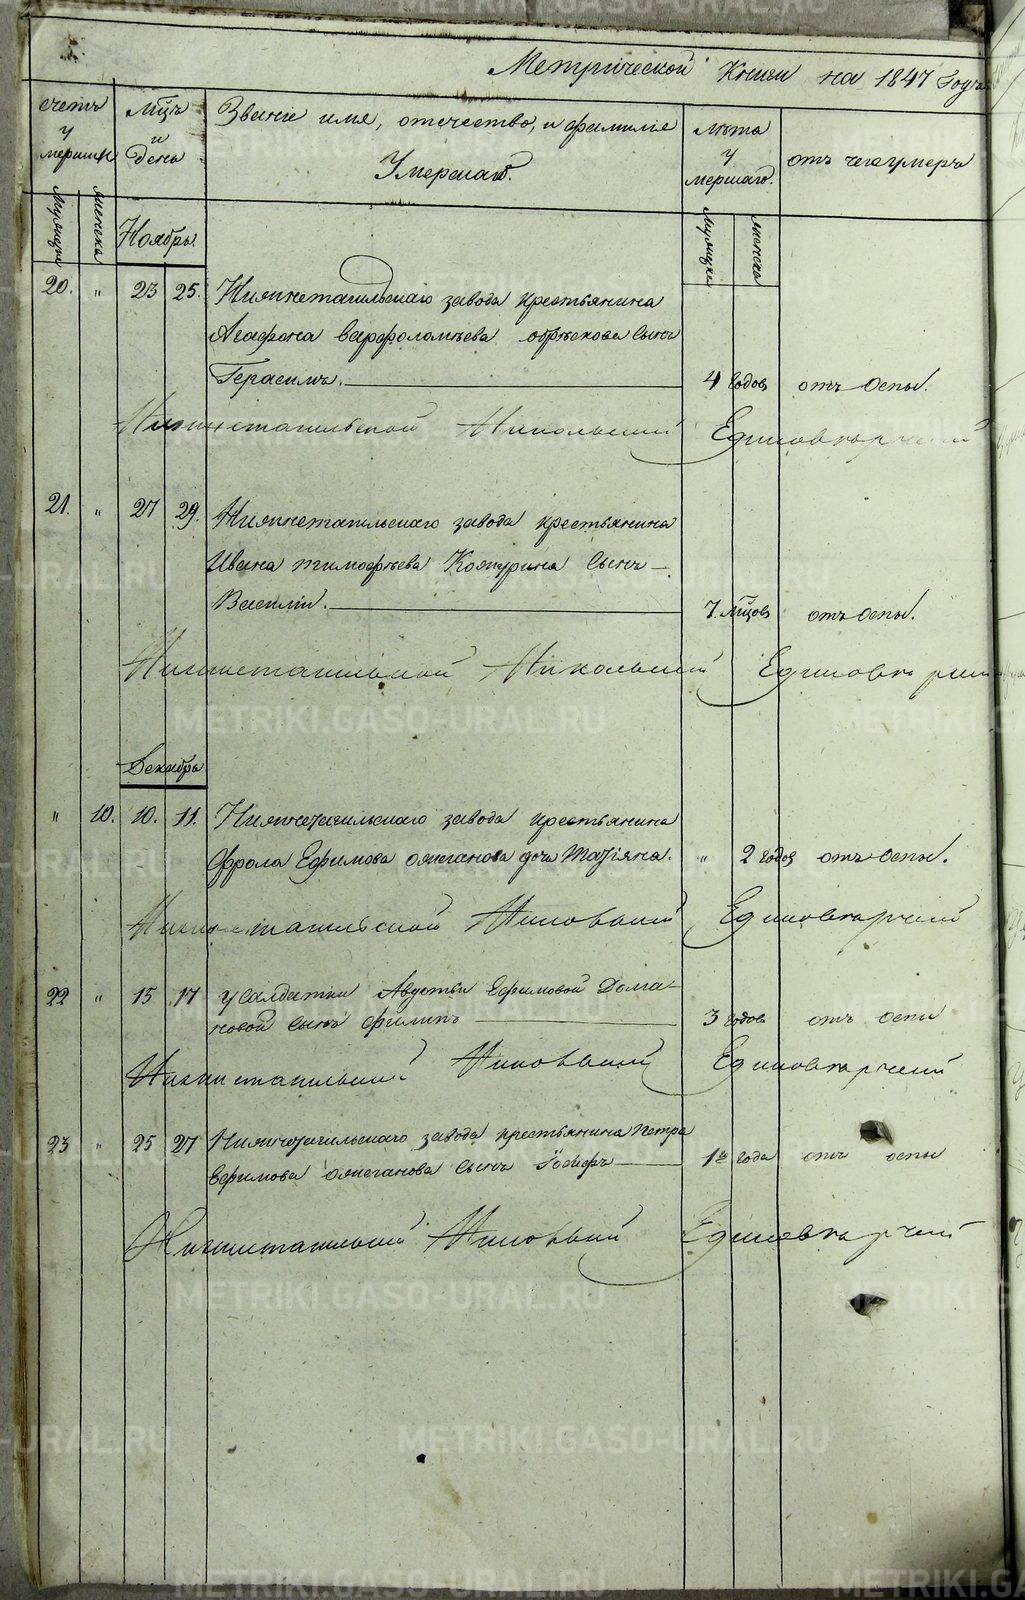 Метрической Книги на 1847 Года
счетъ у мершихъ
Мцъ и День
Званіе имя, отчество, и фамиліе Умершаго.
Лѣта умершаго.
отъ чего умеръ
Мужска
женска
Мужска
женска
Ноябрь.
20. " 23 25. Нижнетагильскаго завода крестьянина
Агафона Варфоломѣева сынъ
Герасимъ. 4 годов отъ Оспы.
Нижнетагильской Никольской Единоверческой
21. " 27 29. Нижнетагильскаго завода крестьянина
Ивана тимофѣева Кожурина Сынъ
Василій. 7. мцов отъ Оспы.
Нижнетагильской Никольской Единоверческой
Декабрь
" 10. 10. 11. Нижнетагильскаго завода крестьянина
Фрола Ефимова ожеганова дочь Татіяна. " 2 годов отъ Оспы.
Нижнетагильской Никольской Единоверческой
22 " 15 17 у Салдатки Авдотьи Ефимовой Дома-
новой Сынъ Филипъ 3 годов отъ оспы
Нижнетагильской Никольской Единоверческой
23 " 25 27 Нижнетагильскаго завода крестьянина Петра
Ефимова ожеганова Сынъ Іосифъ года отъ оспы
Нижнетагильской Никольской Единоверческой
METRIKI.GASO-URAL.RU